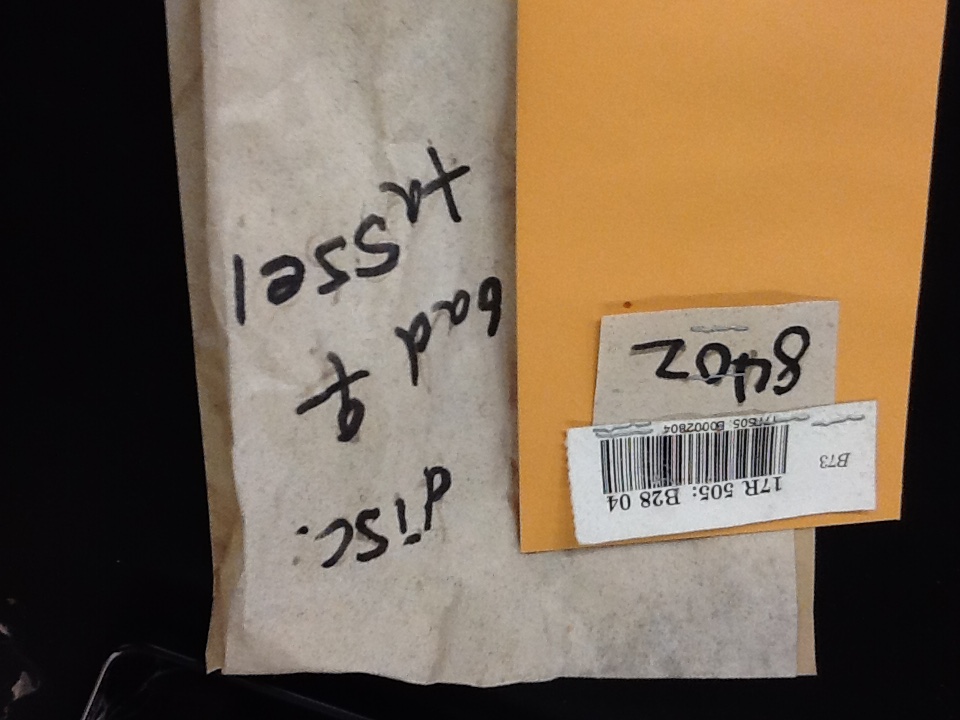 17R 505: B28 04
B73
17R505:B0002804
84oz
disc.
bad ♀
tassel